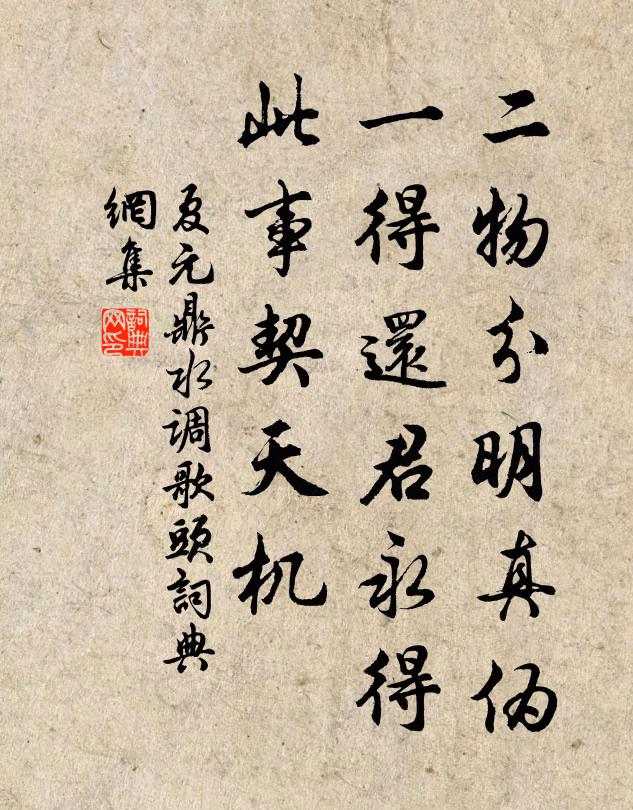 二物分明真伪
一得還君永得
此事契天机
夏元鼎水调歌頭詞典
網集
詞典
网印